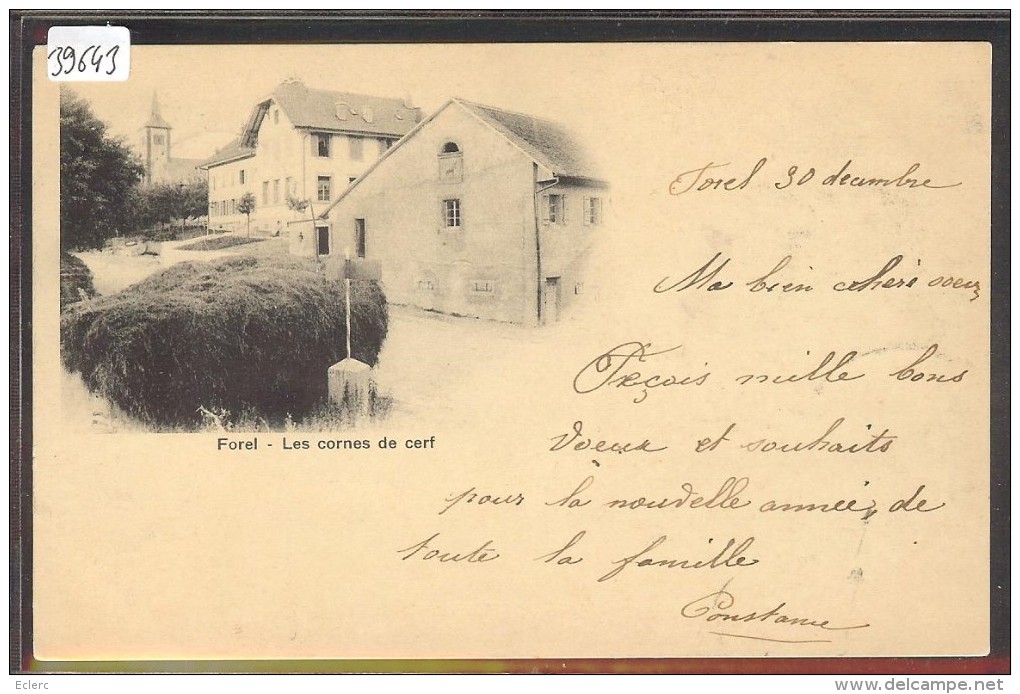 39643
Forel 30 decembre
Ma bien chère soeur
Reçois mille bons
voeux et souhaits
pour la nouvelle année, de
toute la famille
Constance
Forel - Les cornes de cerf
Eclerc
www.delcampe.net